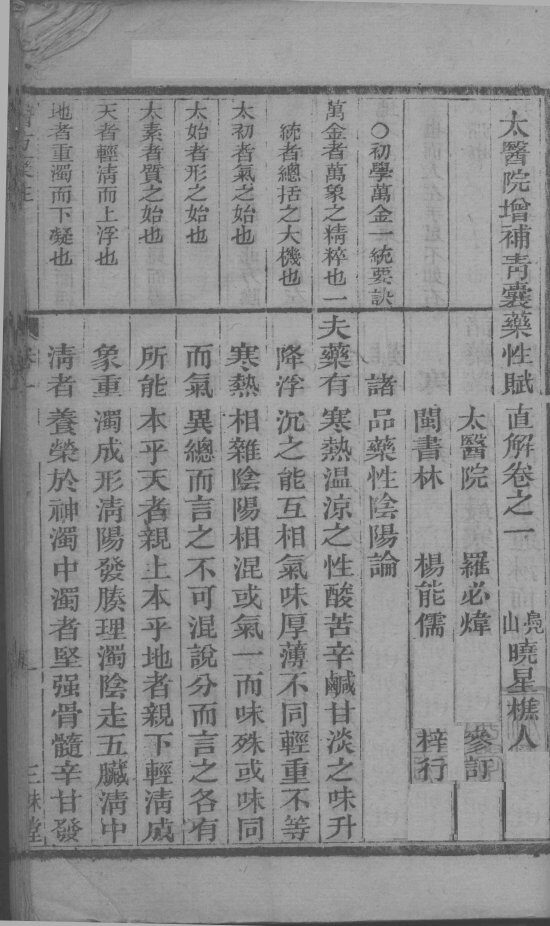 太醫院增補青囊藥性賦直解卷之一
鳧山曉星樵人
太醫院 羅必煒 參訂
閩書林 楊能儒 梓行
〇初學萬金一統要訣
萬金者萬象之精粹也一
統者總括之大機也
太初者氣之始也
太始者形之始也
太素者質之始也
天者輕清而上浮也
地者重濁而下凝也
諸品藥性陰陽論
夫藥有寒熱温涼之性酸苦辛鹹甘淡之味升
降浮沉之能互相氣味厚薄不同輕重不等
寒熱相雜陰陽相混或氣一而味殊或味同
而氣異總而言之不可混說分而言之各有
所能本乎天者親上本乎地者親下輕清成
象重濁成形清陽發腠理濁陰走五臟清中
清者養榮於神濁中濁者堅强骨髓辛甘發